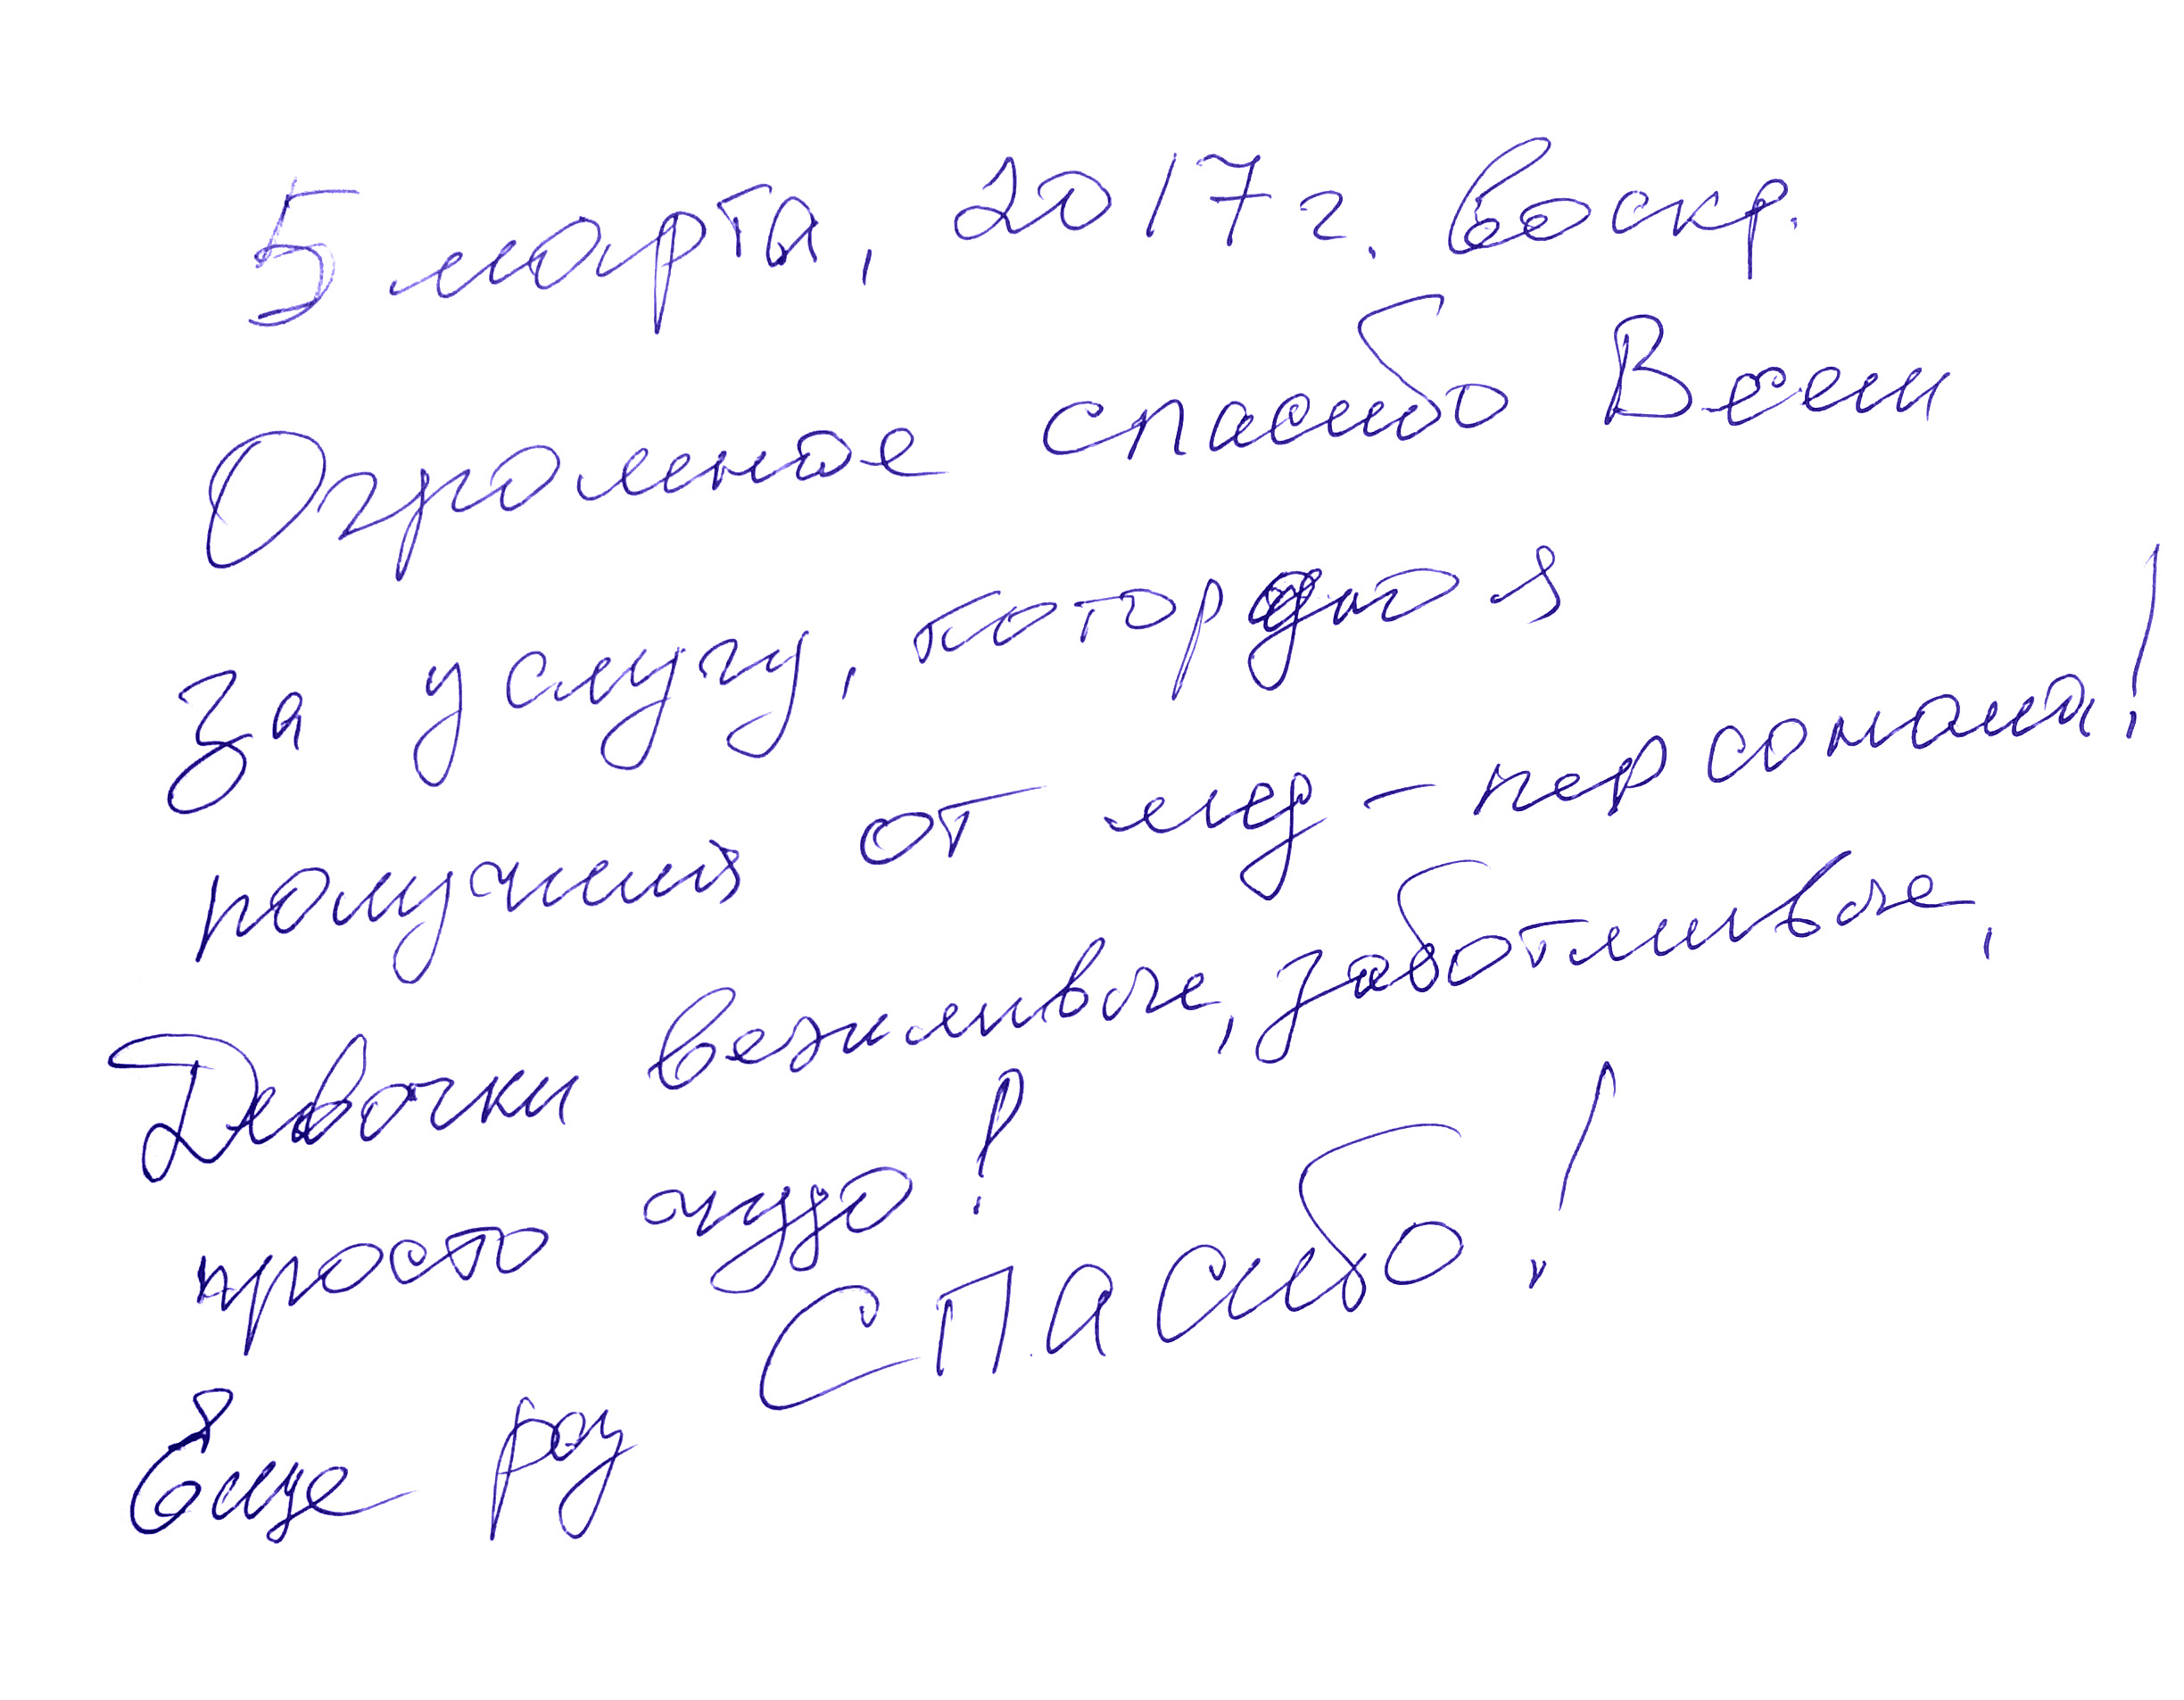 5 марта, 2017 г. воскр.
Огромное спасибо Всем
за услугу, которую я
получила от мед - персонала!
Девочки вежливые, заботливые,
просто чудо!
Еще раз Спасибо!